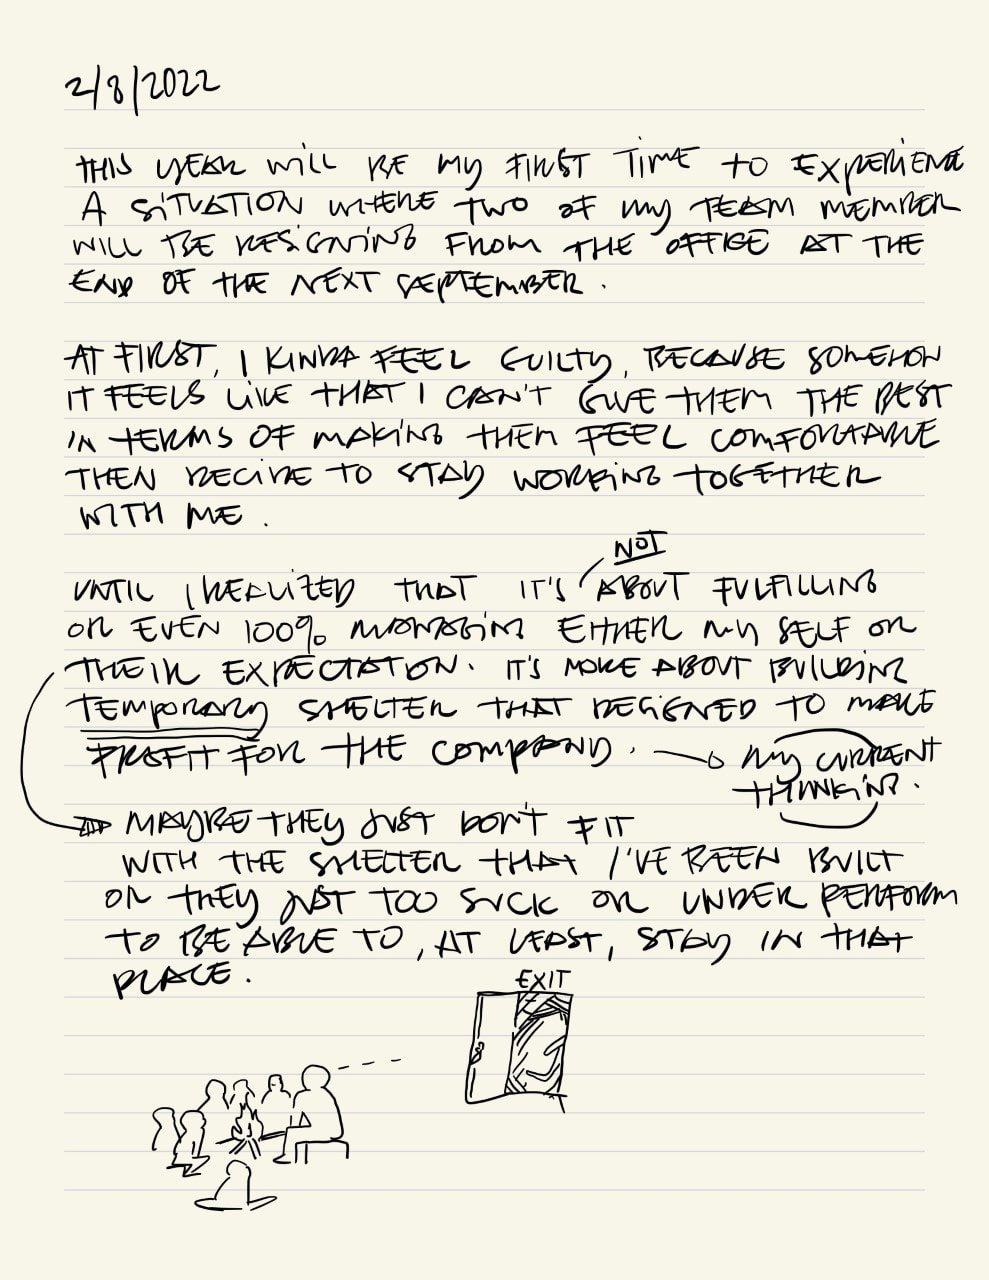 2/8/2022
THIS YEAR WILL BE MY FIRST TIME TO EXPERIENCE
A SITUATION WHERE TWO OF MY TEAM MEMBER
WILL BE RESIGNING FROM THE OFFICE AT THE
END OF THE NEXT SEPTEMBER.
AT FIRST, I KINDA FEEL GUILTY, BECAUSE SOMEHOW
IT FEELS LIKE THAT I CAN'T GIVE THEM THE BEST
IN TERMS OF MAKING THEM FEEL COMFORTABLE
THEN DECIDE TO STAY WORKING TOGETHER
WITH ME.
NOT
UNTIL I REALIZED THAT IT'S ABOUT FULFILLING
OR EVEN 100% MANAGING EITHER MY SELF OR
THEIR EXPECTATION. IT'S MORE ABOUT BUILDING
TEMPORARY SHELTER THAT DESIGNED TO MAKE
PROFIT FOR THE COMPANY.
MY CURRENT
THINKING.
MAYBE THEY JUST DON'T FIT
WITH THE SHELTER THAT I'VE BEEN BUILT
OR THEY JUST TOO SUCK OR UNDER PERFORM
TO BE ABLE TO, AT LEAST, STAY IN THAT
PLACE.
EXIT